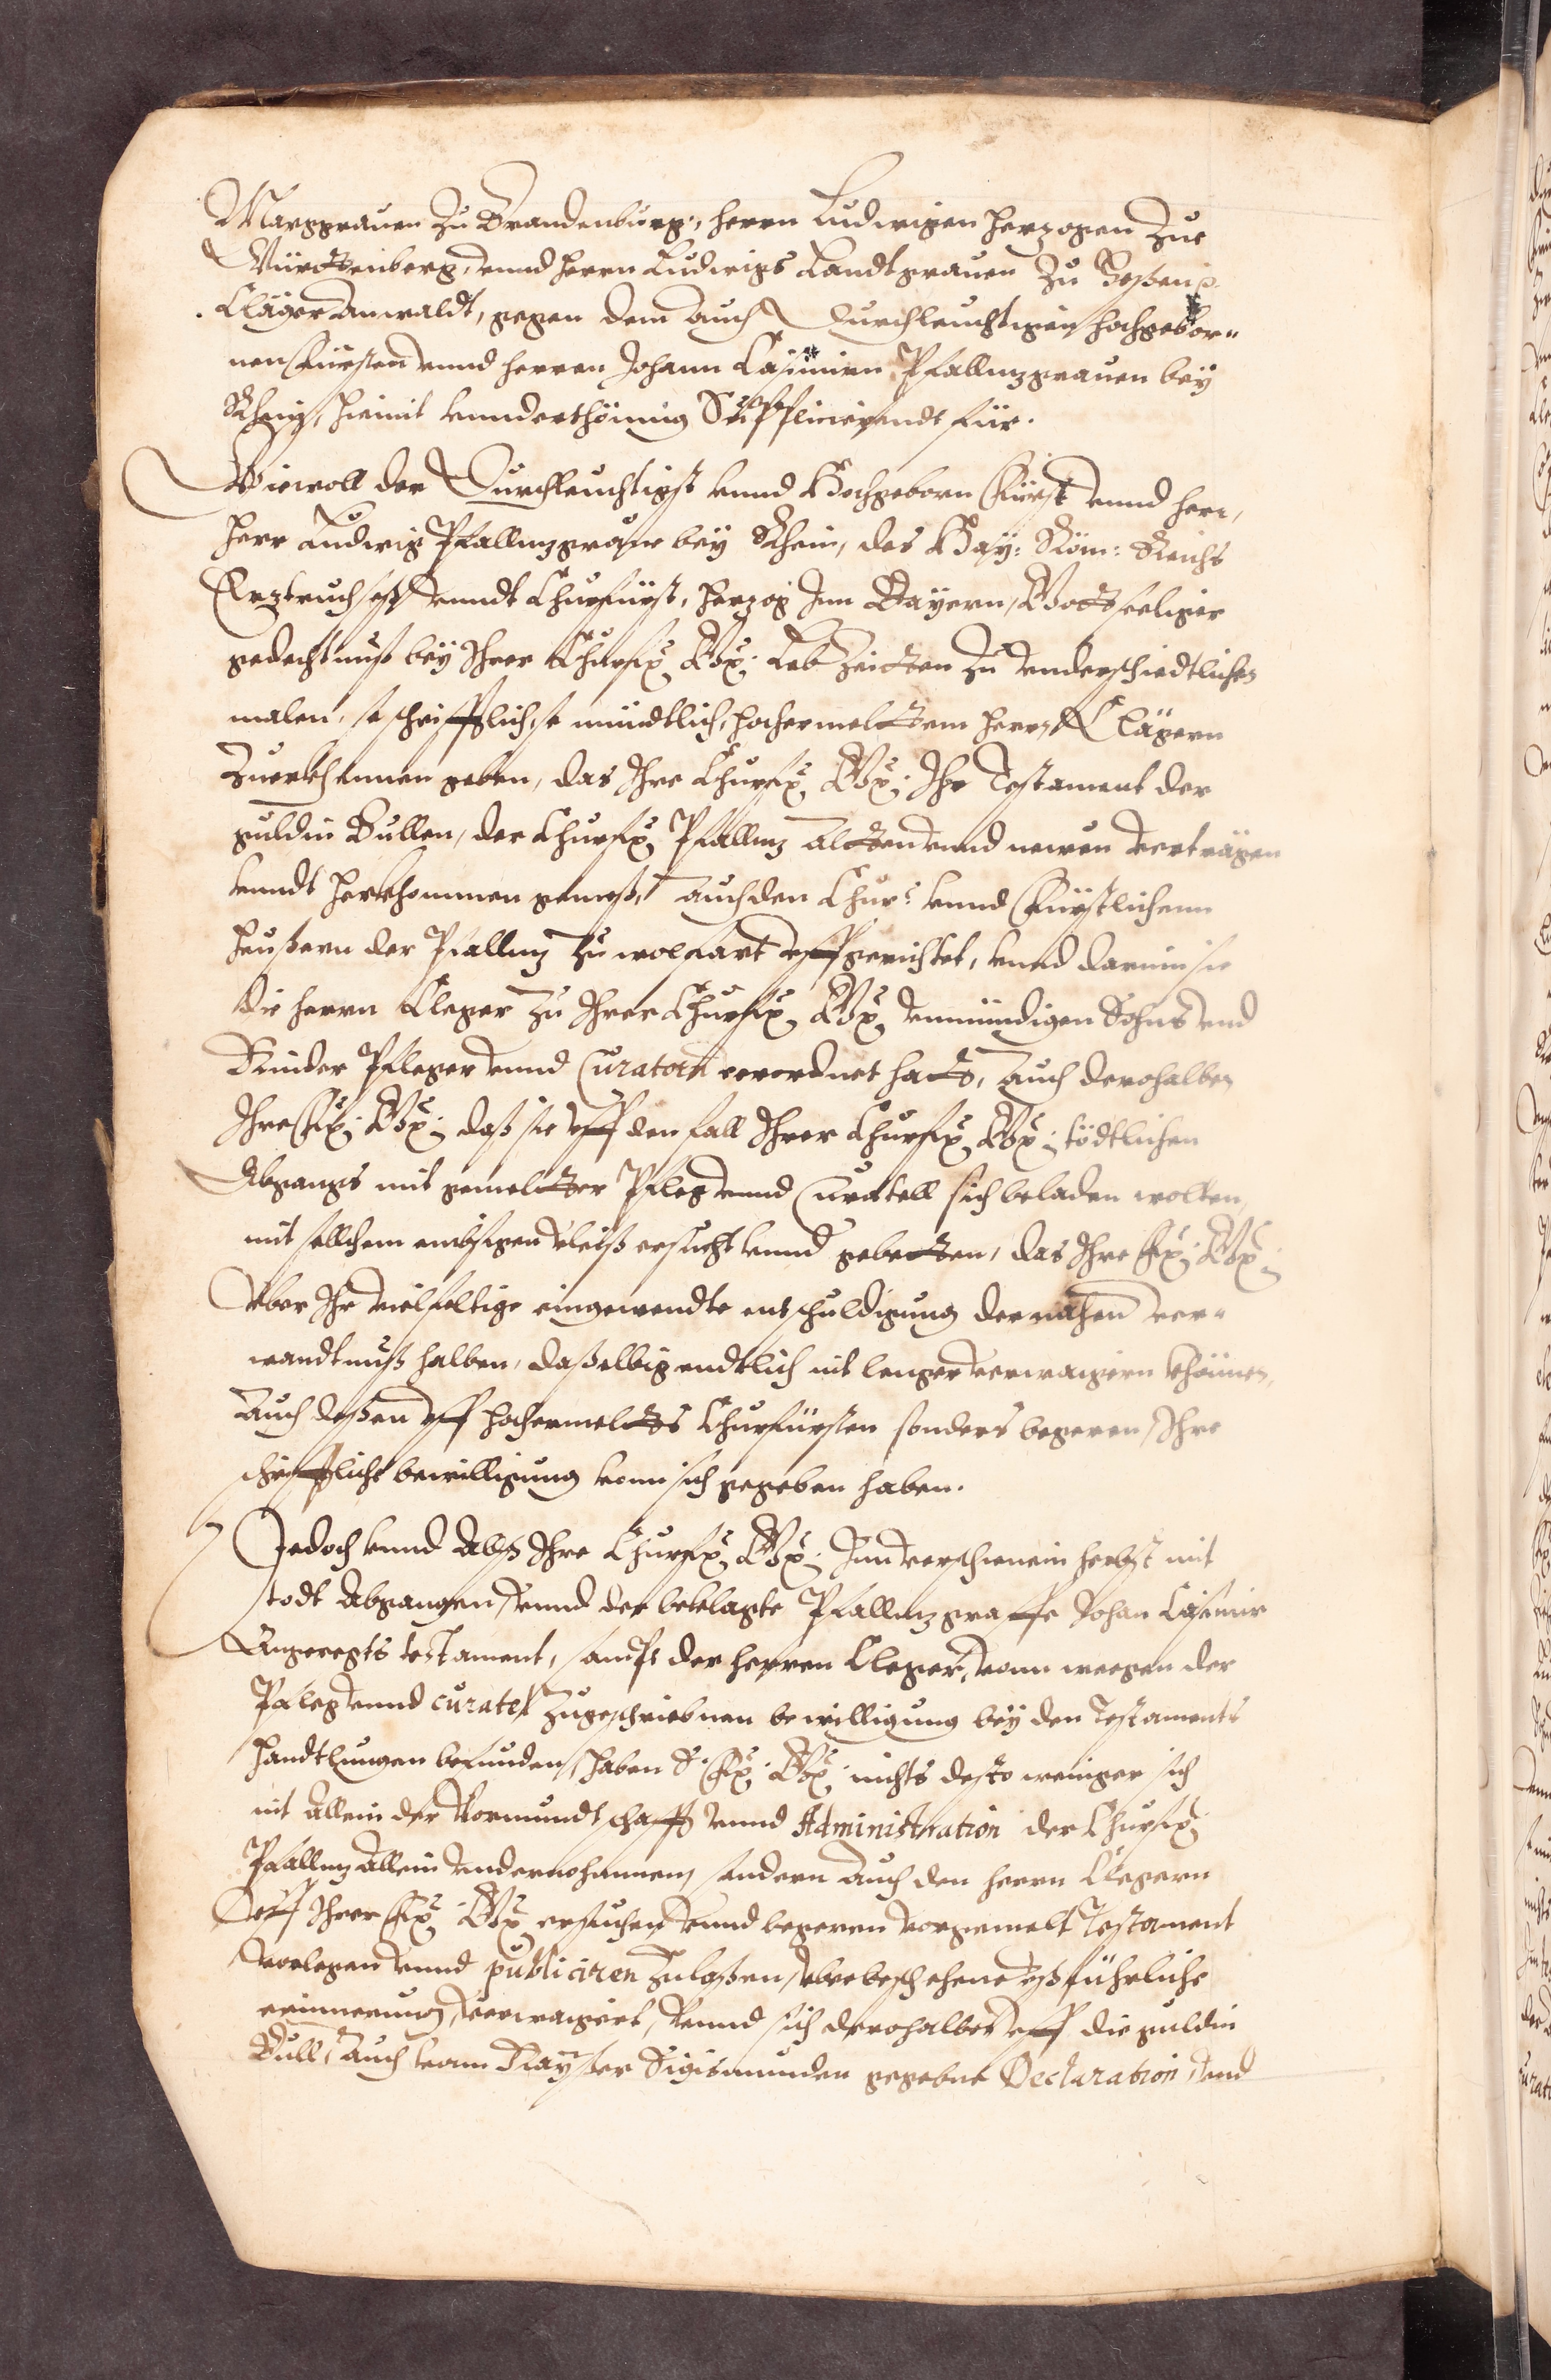 Marggrauen zu Brandenburg, herrn Ludwigen herzogen zue
Würtenberg, vnnd herrn Ludwigs Landtgrauen zu Hessen ꝛc.
Cläger Anwaldt, gegen dem auch Durchleuchtigen hochgebor„
nen Fürsten vnnd herren Johann Casimirn Pfalltzgrauen bey
Rhein, hiemit vnnderthönnig Supplicierendt für.
Wiewoll der Durchleuchtigst vnnd Hochgeborn Fürst vnnd herr,
herr Ludwig Pfalltzgraue bey Rhein, des Hay: Röm: Reichs
Ertztruchseß vnndt Churfürst, Herzog Inn Bayern, Gottseeliger
gedechtnuß bey Ihrer Churfr. Gr. Lebzeitten zu vnderschiedtlichen
malen, so schrifftlich, so mündtlich, hochermeltem herrn Clägern
Zuerkhennen geben, das Ihre Churfr. Gr. Ihr Testament der
guldin Bullen, der Churfr. Pfalltz alten vnnd newen verträgen
vnndt herkhommen gemeß, auch den Chur: vnnd Fürstlichenn
heußern der Pfalltz zu wolfart vffgerichtet, vnnd darinn sie
die herrn Cleger zu Ihrer Churfr. Gr. vnmündigen Sohns vnd
Kinder Pfleger vnnd Curatorn verordnet hatt, auch derohalben
Ihre Fr. Gr. daß sie vff den fall Ihrer Churfr. Gr. tödtlichen
Abgangs mit gemelter Pfleg vnnd Curatell sich beladen wolten,
mit sollchem embsigen vleiß ersucht vnnd gebetten, das Ihre Fr. Gr.
Vber Ihr vielfeltige eingewendte entschuldigung der nahen ver„
wandtnuß halben, daßelbig endtlich nit lenger verwaigern khönnen,
Auch deßen vff hochermelts Churfürsten sonders begeren, Ihre
schrifftliche bewilligung vonn sich gegeben haben.
Jedoch vnnd Alß Ihre Churfr. Gr. Inn verschienem herbst mit
todt Abgangen, vnnd der beklagte Pfalltzgraffe Johan Casimir
Angeregts testament, sampt der herren Cleger, vonn weegen der
Pfleg vnnd curatel zugeschriebnen bewilligung bey den Testaments
handtlungen befunden, haben S. Fr. Gr. nichts desto weniger sich
nit allein der Vormundtschafft vnnd Administration der Churfr.
Pfalltz allein vndernohmmen, sondern auch den herrn Clegern
Vff Ihrer Fr. Gr. ersuchen vnnd begeren vorgemelt Testament
vorlegen vnnd publiciren zulaßen, vber beschehene vßführliche
erinnerung, verwaigert, vnnd sich derohalben vff die guldin
Bull, auch vonn Kayßer Sigismunden gegebne Declaration, vnd